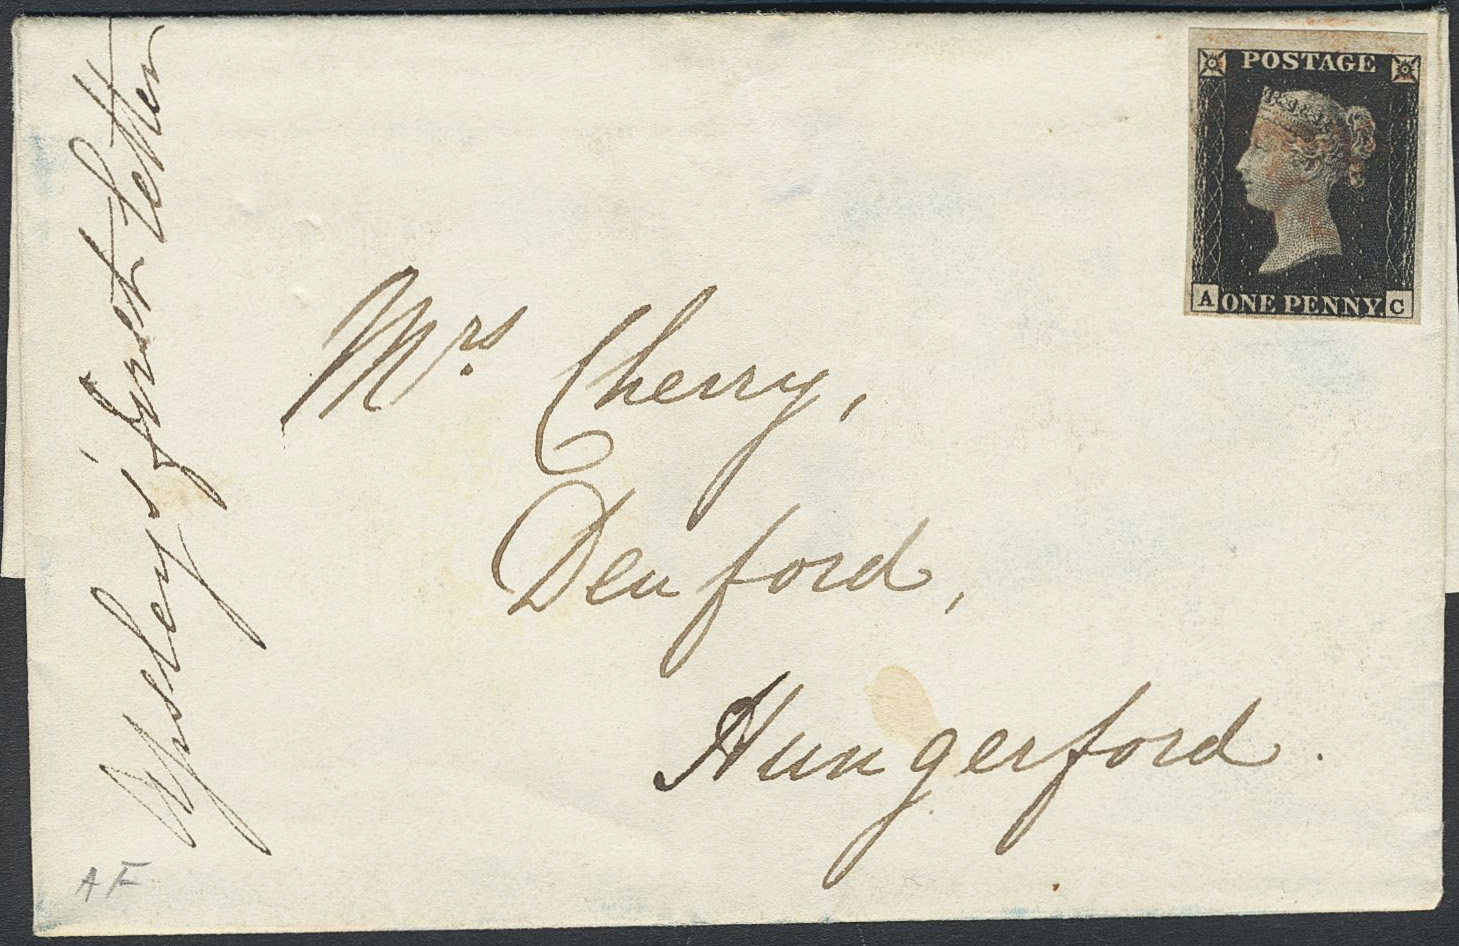 POSTAGE
A ONE PENNY C
Mrs Cherry,
Denford,
Hungerford.
Apsley's first Letter
A F